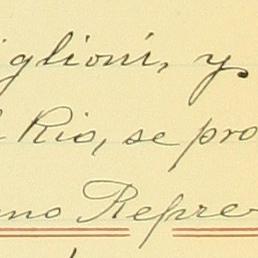 iglioni, y
Rio, se pro
no Repre